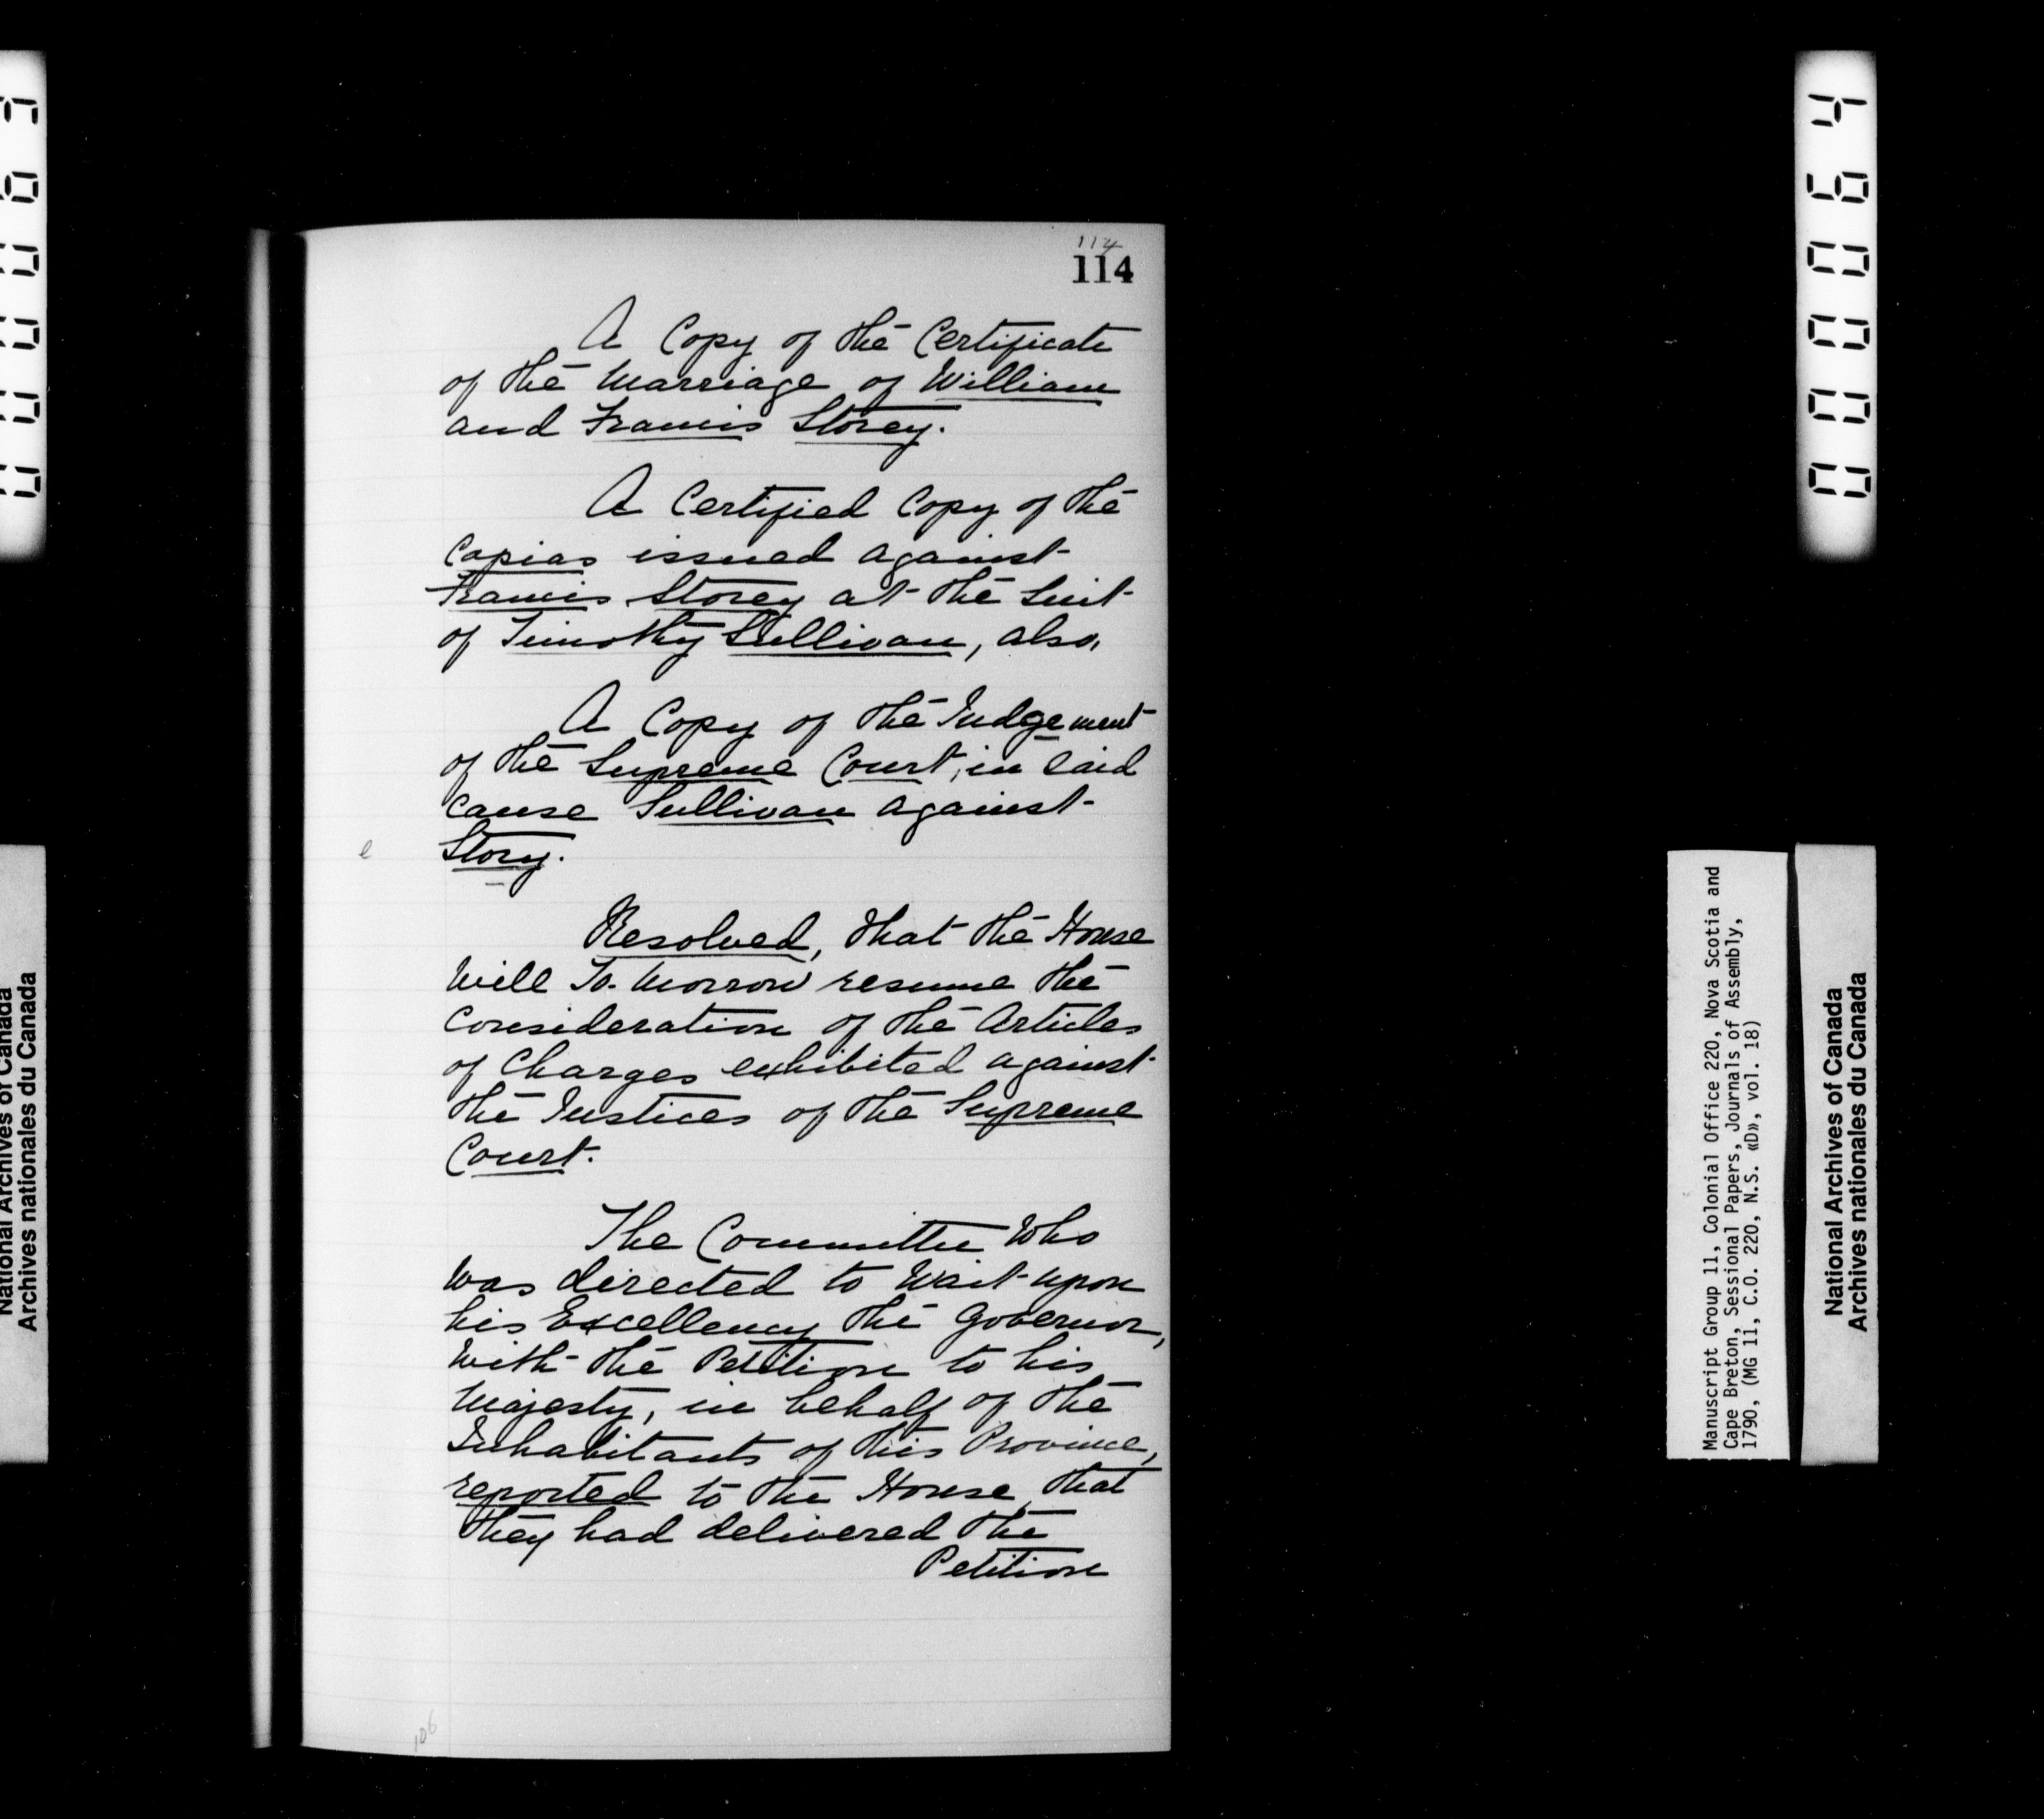 114
114
A Copy of the Certificate
of the Marriage of William
and Francis Storey.
A Certified Copy of the
Capias issued against
Francis Storey at the Suit
of Timothy Sullivan, also,
A Copy of the Judgement
of the Supreme Court, in said
cause Sullivan against
e Story.
Resolved, that the House
will To-Morrow resume the
Consideration of the Articles
of Charges exhibited against
the Justices of the Supreme
Court.
The Committee Who
was directed to Wait upon
his Excellency the Governor,
with the Petition to his
Majesty, in behalf of the
Inhabitants of this Province,
reported to the House that
they had delivered the
Petition
106
000064
Manuscript Group 11, Colonial Office 220, Nova Scotia and
Cape Breton, Sessional Papers, Journals of Assembly,
1790, (MG 11, C.O. 220, N.S. «D», vol. 18)
National Archives of Canada
Archives nationales du Canada
National Archives of Canada
Archives nationales du Canada